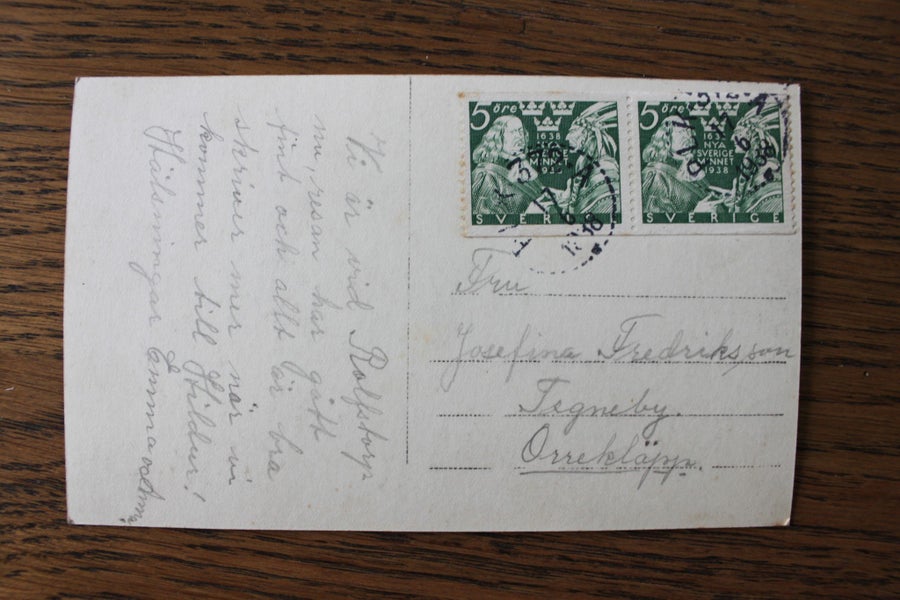 Vi är vid Rolfstorp
nu, resan har gått
fint och allt är bra
skriver mer när vi
kommer till Hildur!
Hälsningar Emma och Anna
5 öre
1638
SVERIGE
MINNET
1938
SVERIGE
5 öre
1638
NYA
SVERIGE
MINNET
1938
SVERIGE
17
6
1938
Fru
Josefina Fredriksson
Tegneby.
Orrekläpp.